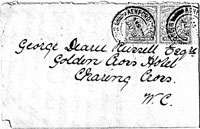 George Deane
Golden Cross Hotel
Charing Cross.
W.C.